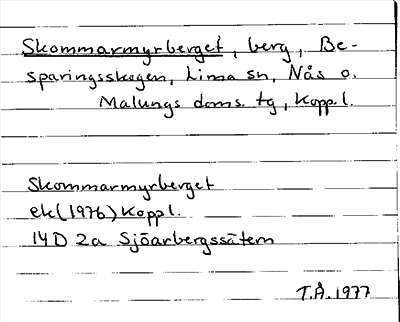 Skommarmyrberget, berg, Be-
sparingsskogen, Lima sn, Nås o.
Malungs doms. tg, Koppl.
Skommarmyrberget
ek (1976) Koppl.
14D 2a Sjöarbergssätern
T.Å. 1977